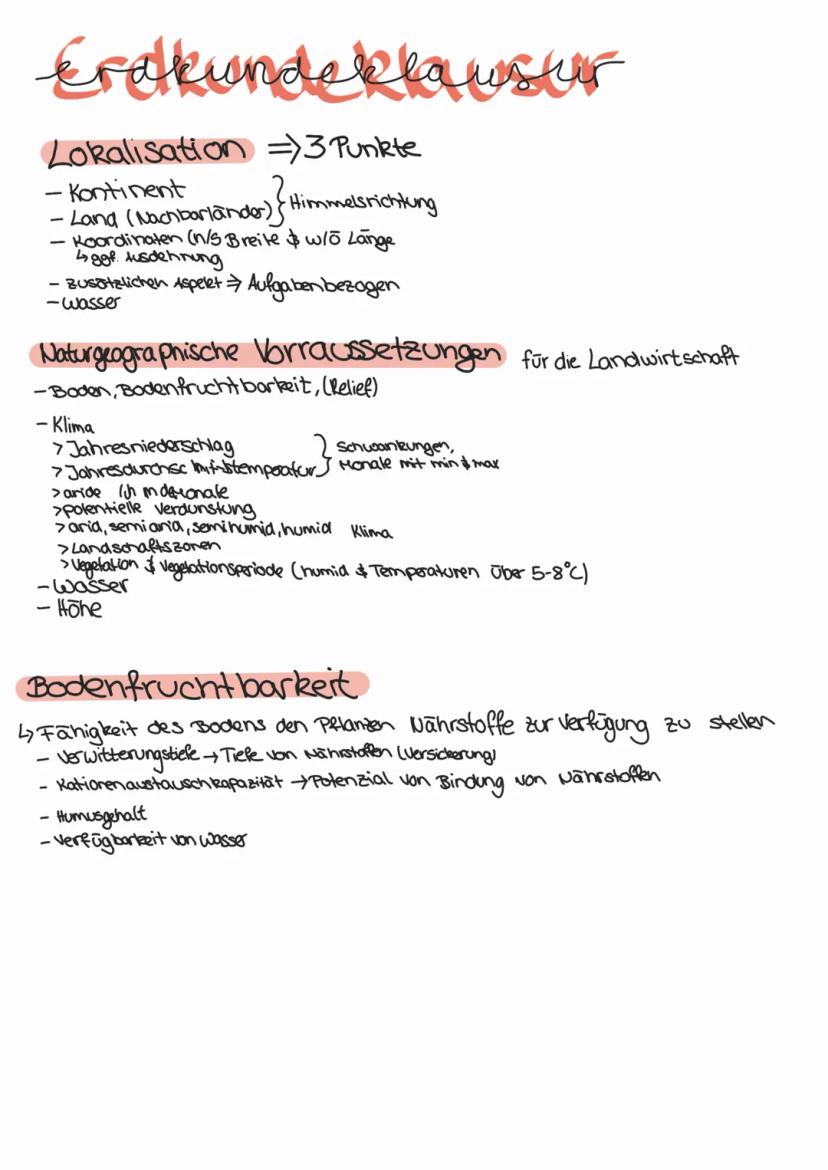 Erdkundeklausur
Lokalisation => 3 Punkte
- Kontinent
- Land (Nachbarländer) } Himmelsrichtung
- Koordinaten (n/s Breite & w/ö Länge
↳ ggf. Ausdehnung
- zusätzlichen Aspekt => Aufgabenbezogen
- Wasser
Naturgeographische Vorraussetzungen für die Landwirtschaft
- Boden, Bodenfruchtbarkeit, (Relief)
- Klima
> Jahresniederschlag } Schwankungen,
> Jahresdurchschnittstemperatur } Monate mit min & max
> aride /h Monate
> potentielle Verdunstung
> arid, semiarid, semihumid, humid Klima
> Landschaftszonen
> Vegetation & Vegetationsperiode (humid & Temperaturen über 5-8°C)
- Wasser
- Höhe
Bodenfruchtbarkeit
↳ Fähigkeit des Bodens den Pflanzen Nährstoffe zur Verfügung zu stellen
- Verwitterungstiefe → Tiefe von Nährstoffen (Versickerung)
- Kationenaustauschkapazität → Potenzial von Bindung von Nährstoffen
- Humusgehalt
- Verfügbarkeit von Wasser